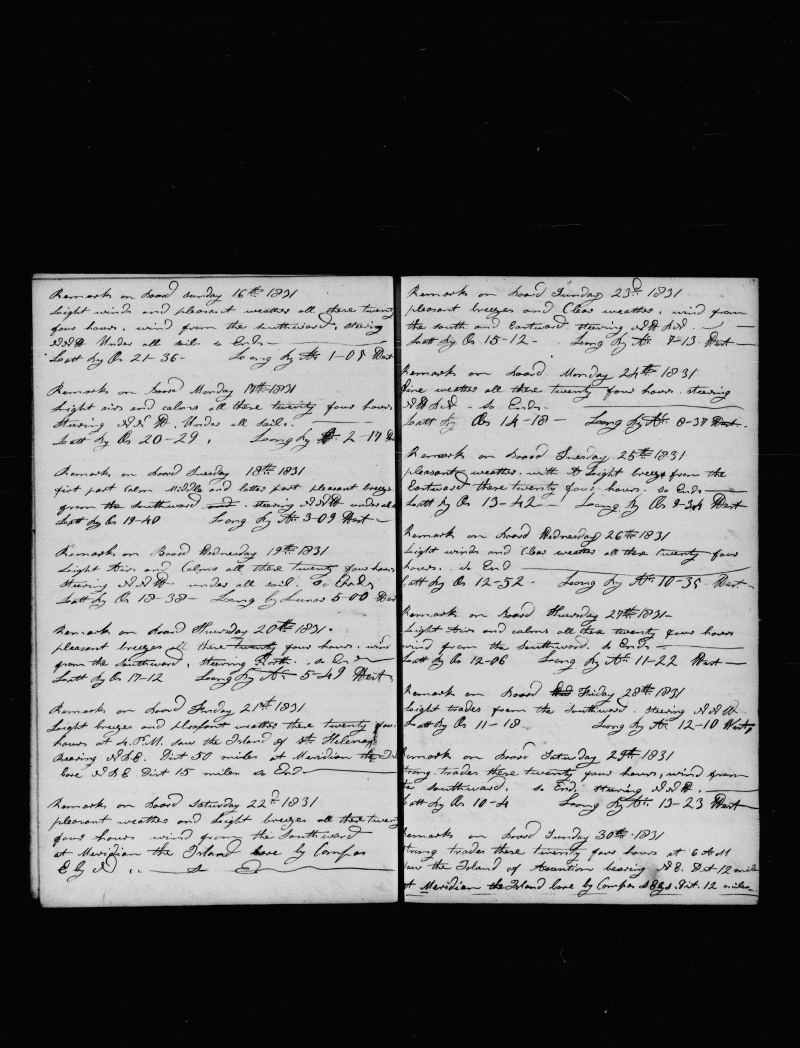 Remarks on board Sunday 16th 1831
Light winds and pleasant weather all these twenty
four hours, wind from the southward, steering
NNW Under all sail. so Ends
Latt by Os 21-36- Loong by Ar 1-05 West
Remarks on board Monday 17th 1831
Light airs and calms all these twenty four hours
Steering NNW. Under all sail.
Latt by Os 20-29, Loong by Ar 2-17
Remarks on board Tuesday 18th 1831
first part Calm Middle and latter part pleasant breeze
from the Southward steering NNW under all
Latt by Os 19-40 Loong by Ar 3-09 West
Remarks on Board Wednesday 19th 1831
Light Airs and Calms all these twenty four hours
Steering NNW under all sail. So Ends
Latt by Os 18-38- Loong by Lunar 5-00 West
Remarks on board Thursday 20th 1831.
pleasant breezes all these twenty four hours. wind
from the Southward, steering North. so Ends
Latt by Os 17-12 Loong by Ar 5-49 West
Remarks on board Friday 21st 1831
Light breezes and pleasant weather these twenty four
hours at 4. P.M. saw the Island of St Helena
Bearing NbE. Dist 50 miles at Meridian the
bore NbE Dist 15 miles so End
Remarks on board Saturday 22d 1831
pleasant weather and Light breezes all these twenty
four hours wind from the Southward
at Meridian the Island bore by Compas
E by N so E
Remarks on board Sunday 23d 1831
pleasant breezes and Clear weather. wind from
the south and Eastward steering NWbN.
Latt by Os 15-12- Loong by Ar 7-13 West
Remarks on board Monday 24th 1831
fine weather all these twenty four hours. steering
NWbN - So Ends
Latt by Os 14-18- Loong by Ar 8-37 West.
Remarks on board Tuesday 25th 1831
pleasant weather with A Light breeze from the
Eastward these twenty four hours. so Ends
Latt by Os 13-42- Loong by Os 9-34 West
Remarks on board Wednesday 26th 1831
Light winds and Clear weather all these twenty four
hours. so End
Latt by Os 12-52- Loong by Ar 10-35- West
Remarks on board Thursday 27th 1831-
Light Airs and calms all these twenty four hours
wind from the Southward. so Ends
Latt by Os 12-06 Loong by Ar 11-22 West
Remarks on board Friday 28th 1831
Light trades from the Southward steering NNW
Latt by Os 11-18 Loong by Ar 12-10 West,
Remarks on board Saturday 29th 1831
Strong trades these twenty four hours, wind from
the southward. so End, steering NNW.
Latt by Os 10-4 Loong by Ar 13-23 West
Remarks on board Sunday 30th 1831
Strong trades these twenty four hours at 6 AM
saw the Island of Asuntion bearing NE. Dist 12 miles
at Meridian the Island bore by Compas Dist. 12 miles